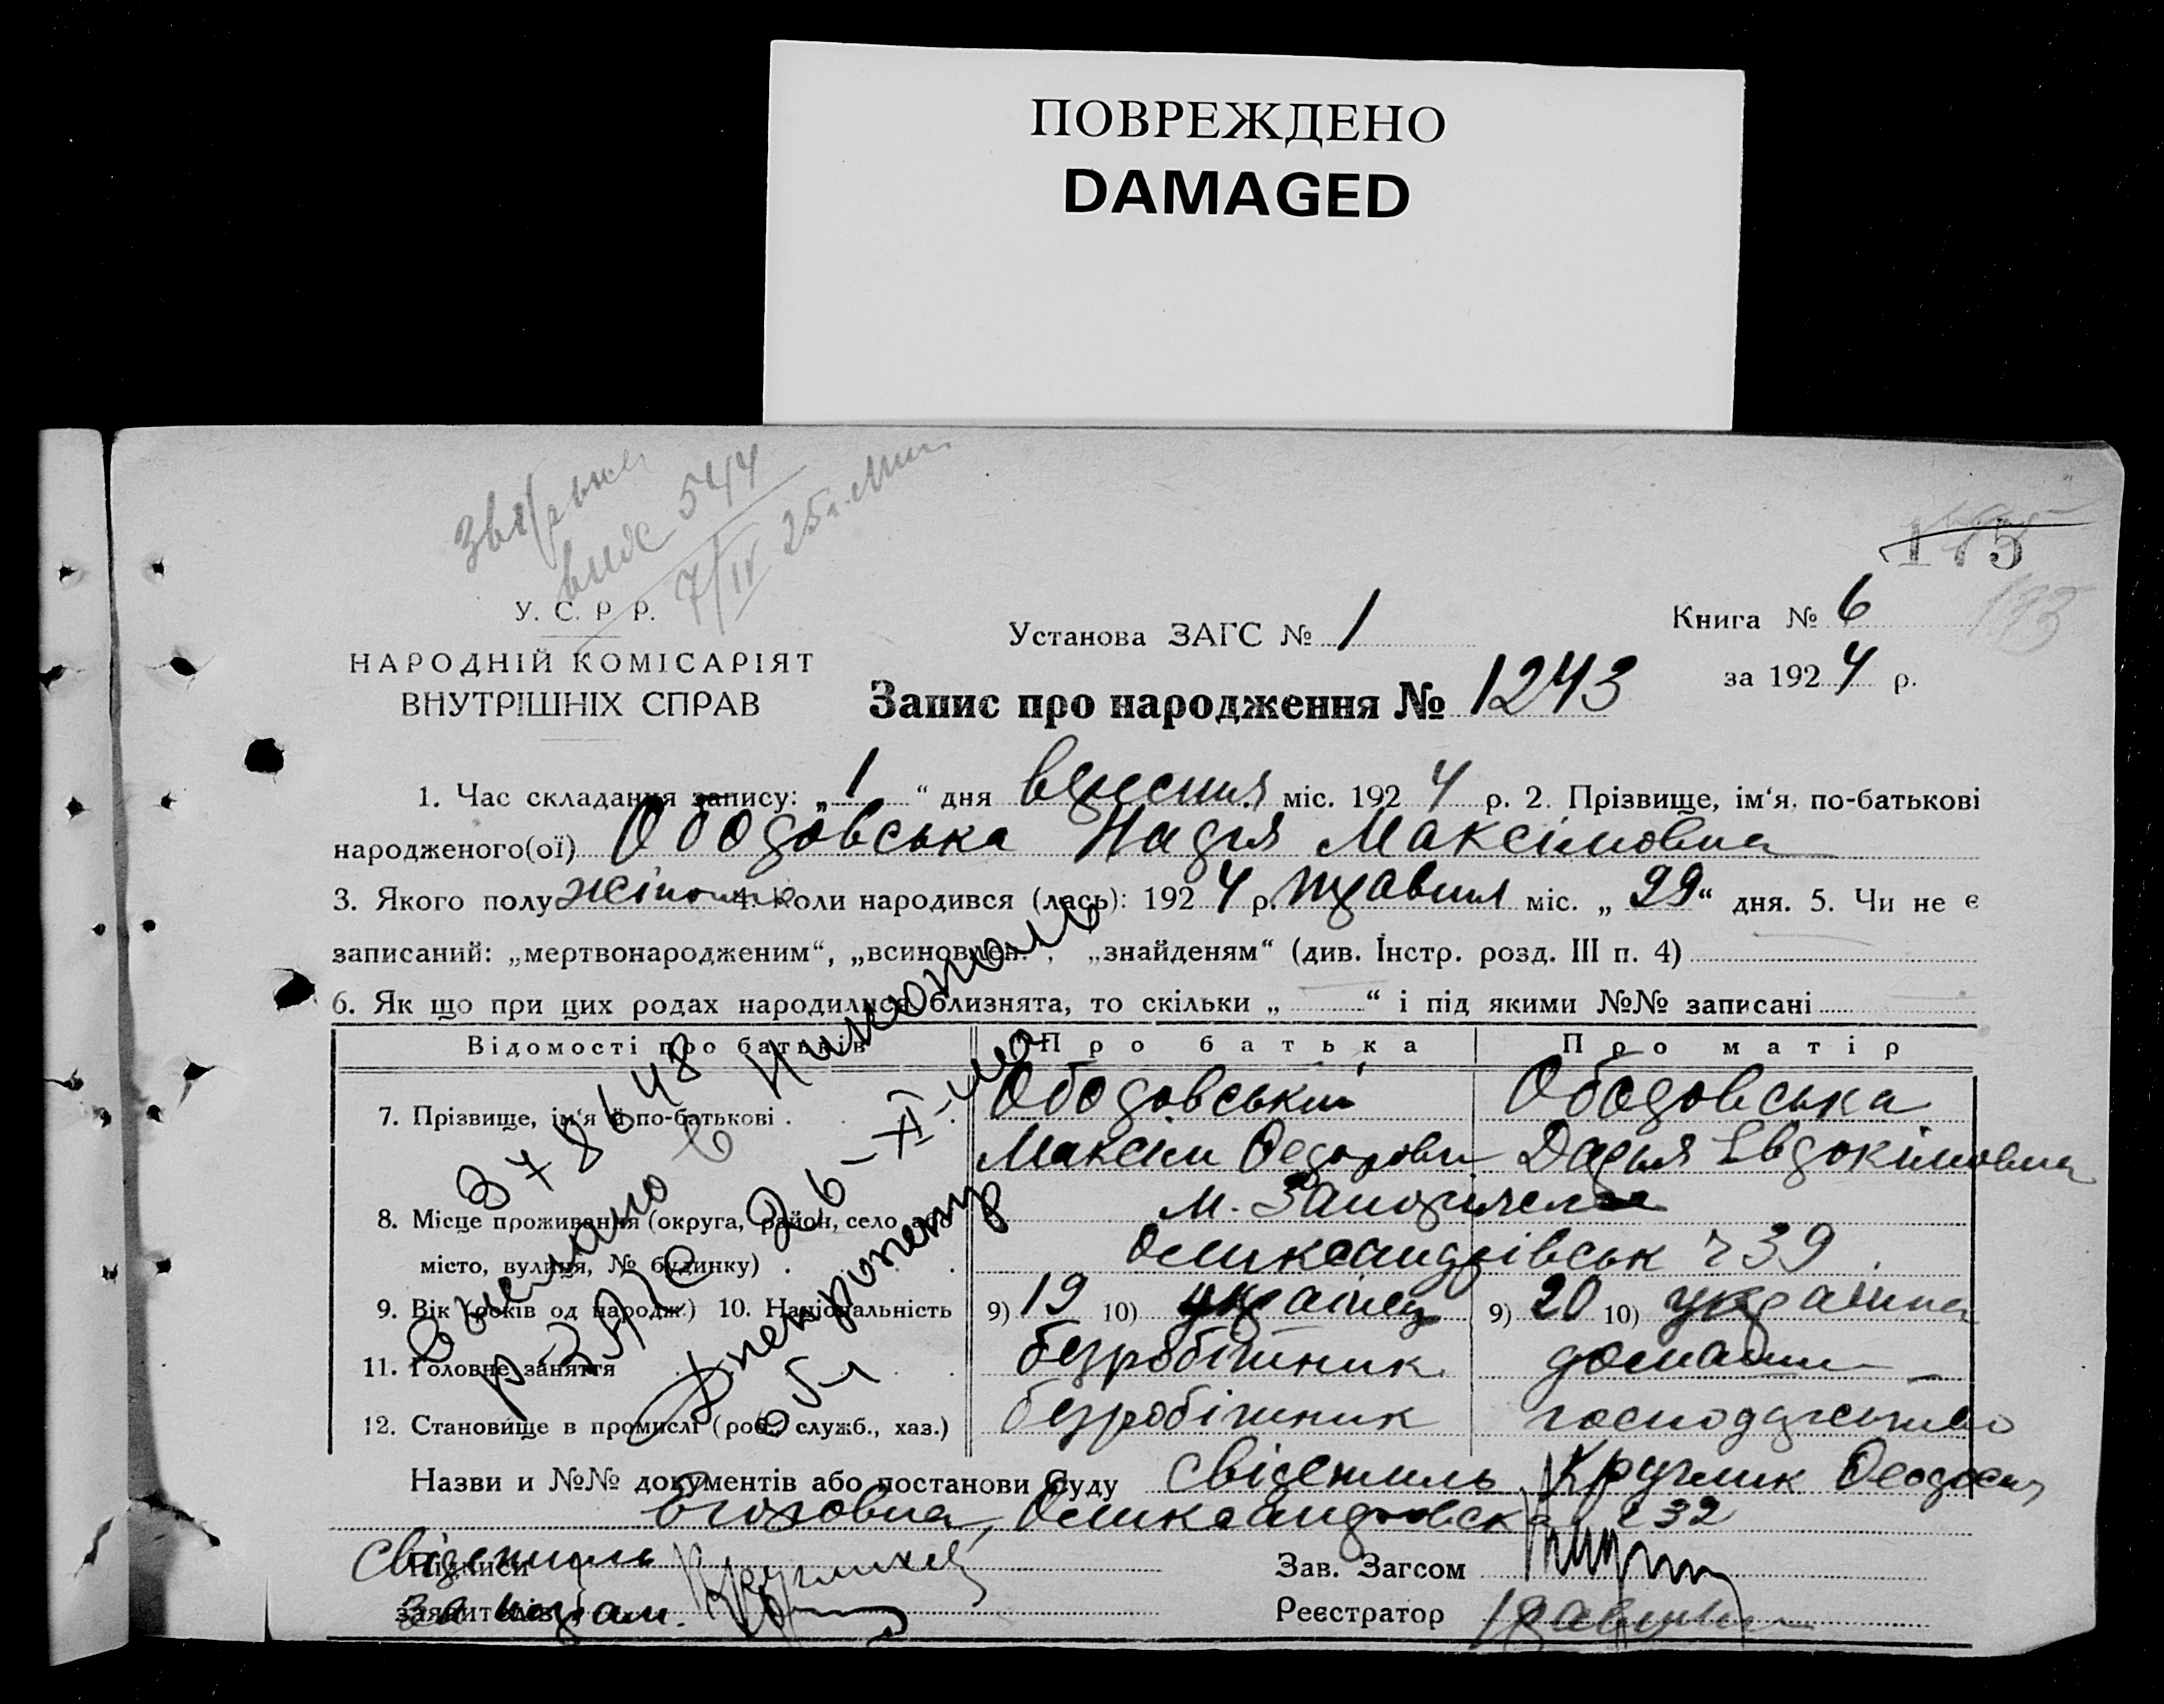 ПОВРЕЖДЕНО
DAMAGED
544
7/IV 25
175
193
У. С. Р. Р.
НАРОДНІЙ КОМІСАРІЯТ
ВНУТРІШНІХ СПРАВ
Установа ЗАГС № 1
Книга № 6
за 1924 р.
Запис про народження № 1243
1. Час складання запису: „1“ дня вересня міс. 1924 р. 2. Прізвище, ім‘я, по-батькові
народженого(ої) Ободовська Надія Максімовна
3. Якого полу жіночо 4. Коли народився (лась): 1924 р. травня міс. „29“ дня. 5. Чи не є
записаний: „мертвонародженим“, „всиновлен.“, „знайденям“ (див. Інстр. розд. III п. 4)
6. Як що при цих родах народилися близнята, то скільки „ “ і під якими №№ записані
Відомості про батьків Про батька Про матір
7. Прізвище, ім‘я й по-батькові . Ободовський Ободовська
Максім Федорович Дарья Евдокімовна
8. Місце проживання (округа, район, село або м.
місто, вулиця, № будинку) . Олександрівськ ч 39
9. Вік (років од народж.) 10. Національність 9) 19 10) украінець 9) 20 10) украінка
11. Головне заняття безробітник домашнє
12. Становище в промислі (роб., служб., хаз.) безробітник господарство
378648
26-XI
Днепропетр
обл
Назви и №№ документів або постанови Суду Свідетиль Круглик Феодосія
Олександровска ч 32
Свідетиль
Підписи
заявителів
Зав. Загсом
Реєстратор